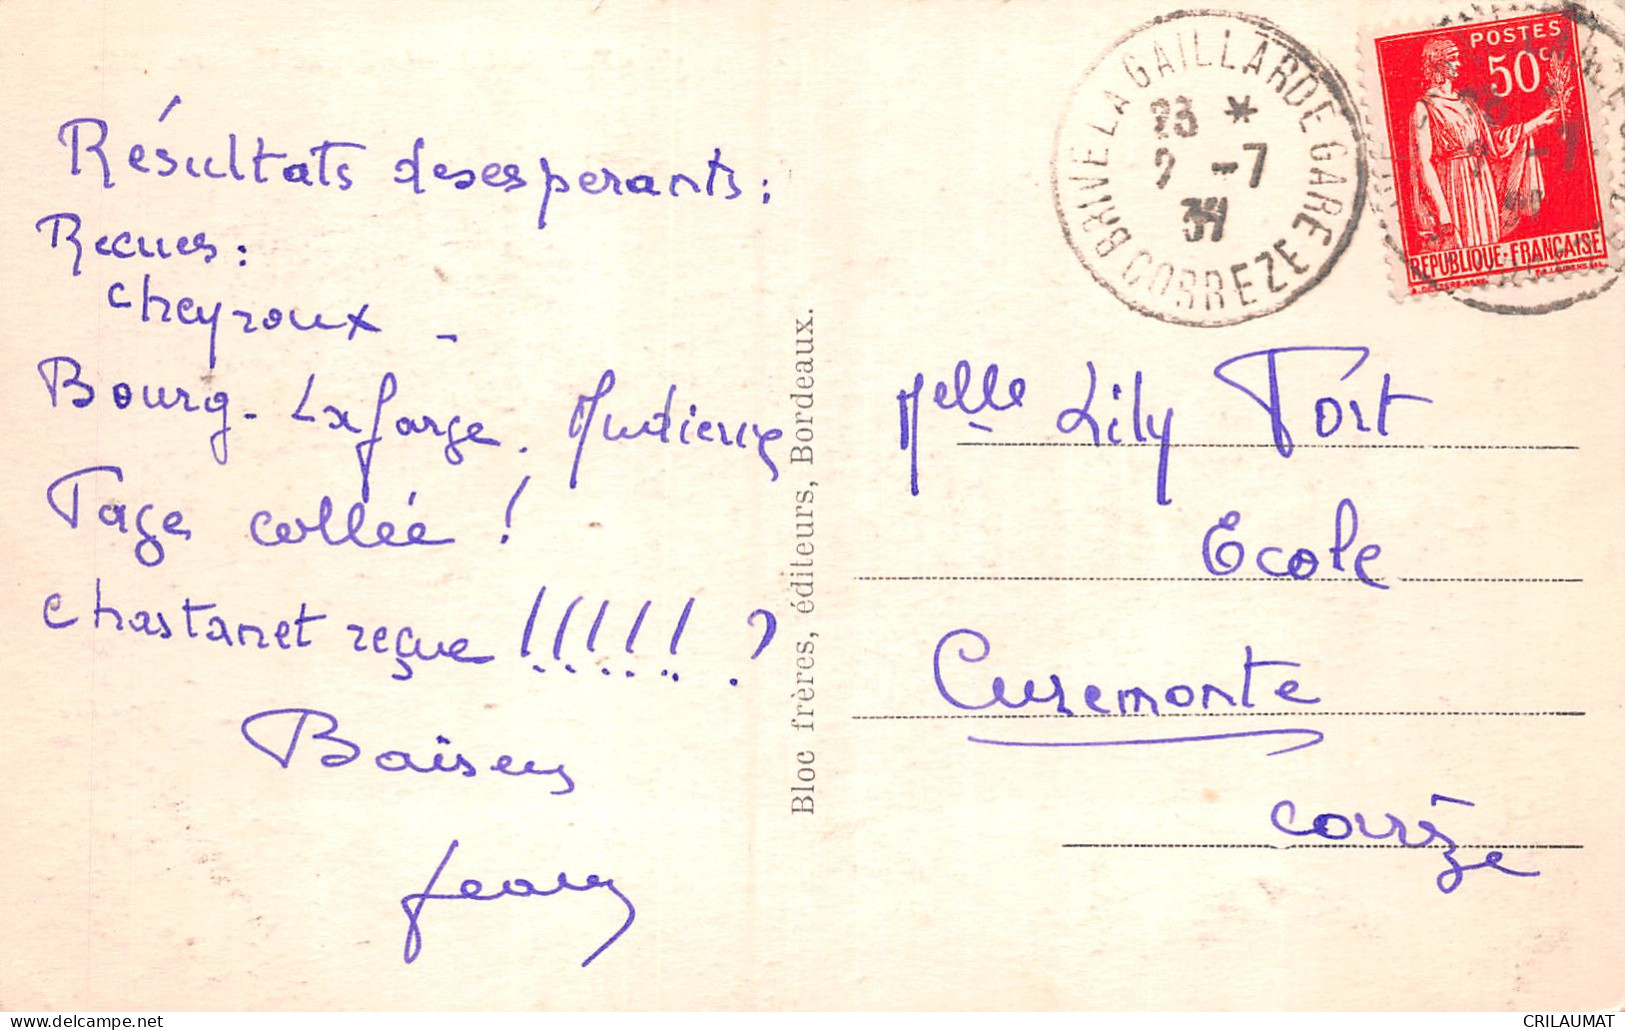 Résultats desesperants :
Recues :
Cheyroux -
Bourg - Lafarge.
Page collée !
Chastanet reçue !!!!!! ?
Baisers
Bloc frères, éditeurs, Bordeaux.
BRIVE LA GAILLARDE GARE
23 *
2 -7
39
CORREZE
POSTES
50c
REPUBLIQUE-FRANÇAISE
Melle Lily Fort
Ecole
Curemonte
Corrèze
CRILAUMAT